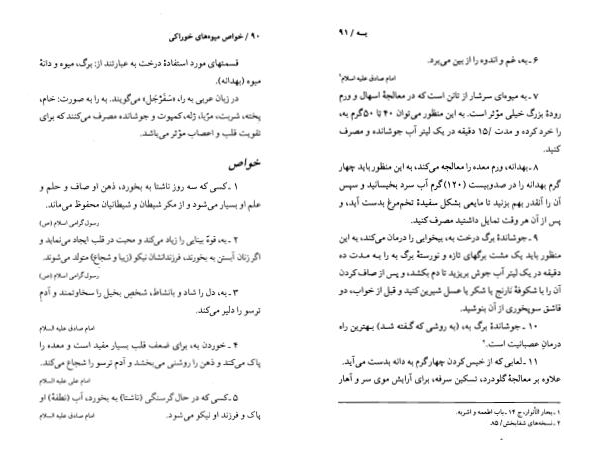 ۹۰ / خواص میوه‌های خوراکی
قسمتهای مورد استفادهٔ درخت به عبارتند از: برگ، میوه و دانهٔ
میوه (بهدانه).
در زبان عربی به را، «سَفَرْجَل» می‌گویند. به را به صورت: خام،
پخته، شربت، مربّا، ژله، کمپوت و جوشانده مصرف می‌کنند که برای
تقویت قلب و اعصاب مؤثر می‌باشد.
خواص
۱ ـ کسی که سه روز ناشتا به بخورد، ذهن او صاف و حلم و
علم او بسیار می‌شود و از مکر شیطان و شیطانیان محفوظ می‌ماند.
رسول گرامی اسلام (ص)
۲ ـ به، قوهٔ بینایی را زیاد می‌کند و محبت در قلب ایجاد می‌نماید و
اگر زنان آبستن به بخورند، فرزندانشان نیکو (زیبا و شجاع) متولد می‌شوند.
رسول گرامی اسلام (ص)
۳ ـ به، دل را شاد و بانشاط، شخص بخیل را سخاوتمند و آدم
ترسو را دلیر می‌کند.
امام صادق علیه السلام
۴ ـ خوردن به، برای ضعف قلب بسیار مفید است و معده را
پاک می‌کند و ذهن را روشنی می‌بخشد و آدم ترسو را شجاع می‌کند.
امام علی علیه السلام
۵ ـ کسی که در حال گرسنگی (ناشتا) به بخورد، آب (نطفهٔ) او
پاک و فرزند او نیکو می‌شود.
امام صادق علیه السلام
به / ۹۱
۶ ـ به، غم و اندوه را از بین می‌برد.
امام صادق علیه السلام¹
۷ ـ به میوه‌ای سرشار از تانن است که در معالجهٔ اسهال و ورم
رودهٔ بزرگ خیلی مؤثر است. به این منظور می‌توان ۴۰ تا ۵۰ گرم به،
را خرد کرده و مدت /۱۵ دقیقه در یک لیتر آب جوشانده و مصرف
کنید.
۸ ـ بهدانه، ورم معده را معالجه می‌کند، به این منظور باید چهار
گرم بهدانه را در صدوبیست (۱۲۰) گرم آب سرد بخیسانید و سپس
آن را آنقدر بهم بزنید تا مایعی بشکل سفیدهٔ تخم‌مرغ بدست آید، و
پس از آن هر وقت تمایل داشتید مصرف کنید.
۹ ـ جوشاندهٔ برگ درخت به، بیخوابی را درمان می‌کند، به این
منظور باید یک مشت برگهای تازه و نورستهٔ برگ به را به مدت ده
دقیقه در یک لیتر آب جوش بریزید تا دم بکشد، و پس از صاف کردن
آن را با شکوفهٔ نارنج یا شکر یا عسل شیرین کنید و قبل از خواب، دو
قاشق سوپخوری از آن بنوشید.
۱۰ ـ جوشاندهٔ برگ به، (به روشی که گفته شد) بهترین راه
درمان عصبانیت است.²
۱۱ ـ لعابی که از خیس کردن چهارگرم به دانه بدست می‌آید.
علاوه بر معالجهٔ گلودرد، تسکین سرفه، برای آرایش موی سر و آهار
۱ ـ بحار الأنوار، ج ۱۴ ـ باب اطعمه و اشربه.
۲ ـ نسخه‌های شفابخش / ۸۵.